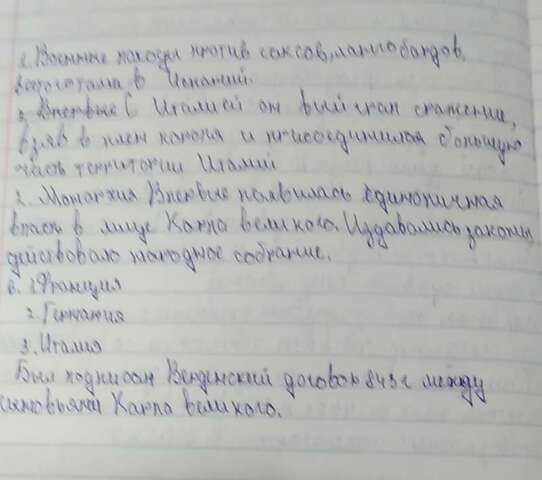 1. Военные походы против саксов, лангобардов,
вестготами в Испании.
3. Впервые с Италией он выйграл сражение,
взяв в плен короля и присоединил большую
часть территории Италии
2. Монархия Впервые появилась единоличная
власть в лице Карла великого. Издавались законы,
действовало народное собрание.
6. 1Франция
2. Германия
3. Италия
Был подписан Верденский договор 843г между
сыновьями Карла великого.